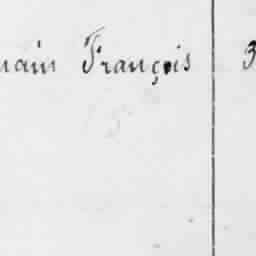 main François 3